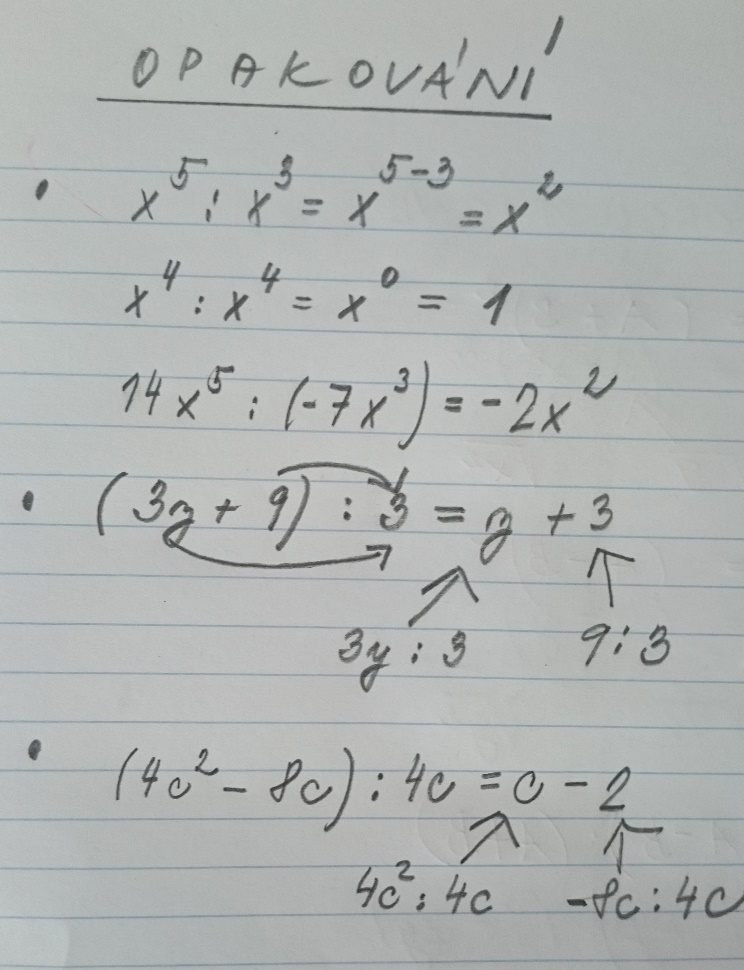 OPAKOVÁNÍ
• x⁵ : x³ = x⁵⁻³ = x²
x⁴ : x⁴ = x⁰ = 1
14x⁵ : (-7x³) = -2x²
• (3y + 9) : 3 = y + 3
3y : 3 9 : 3
• (4c² - 8c) : 4c = c - 2
4c² : 4c -8c : 4c